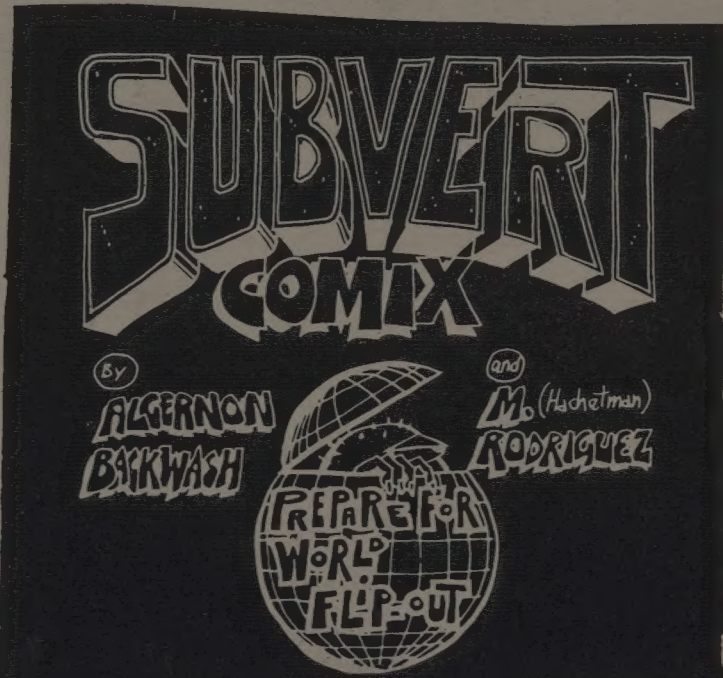 SUBVERT
COMIX
By
ALGERNON
BACKWASH
and
M. (Hachetman)
RODRIGUEZ
PREPARE FOR
WORLD
FLIP-OUT